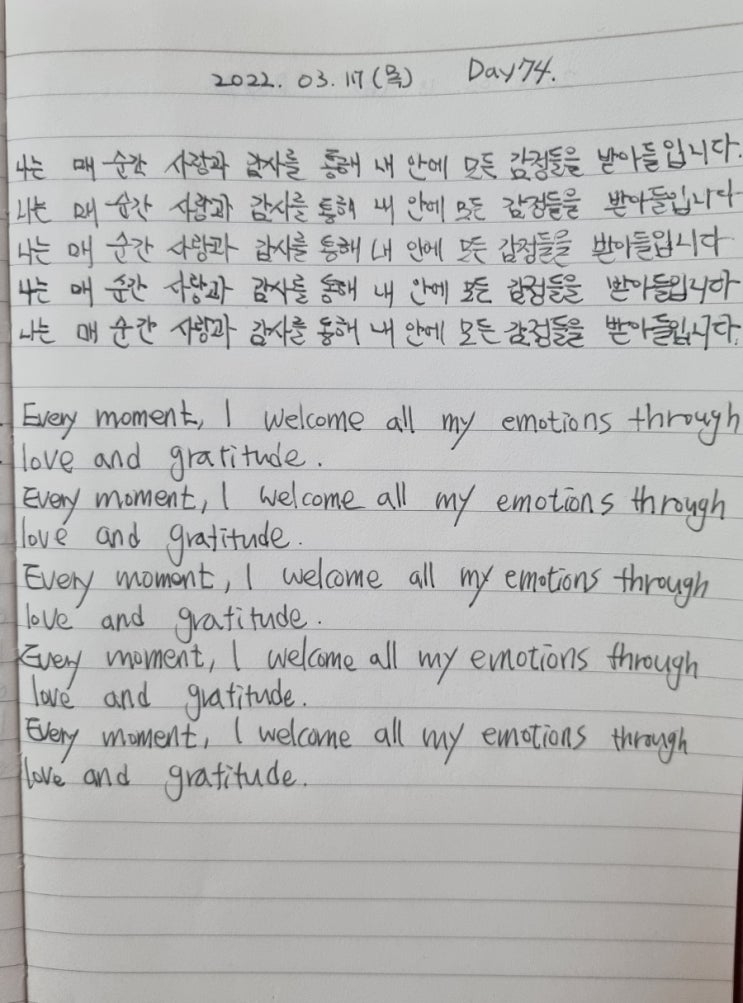 2022. 03. 17 (목) Day 74.
나는 매 순간 사랑과 감사를 통해 내 안에 모든 감정들을 받아들입니다.
나는 매 순간 사랑과 감사를 통해 내 안에 모든 감정들을 받아들입니다
나는 매 순간 사랑과 감사를 통해 내 안에 모든 감정들을 받아들입니다
나는 매 순간 사랑과 감사를 통해 내 안에 모든 감정들을 받아들입니다
나는 매 순간 사랑과 감사를 통해 내 안에 모든 감정들을 받아들입니다.
Every moment, I welcome all my emotions through
love and gratitude.
Every moment, I welcome all my emotions through
love and gratitude.
Every moment, I welcome all my emotions through
love and gratitude.
Every moment, I welcome all my emotions through
love and gratitude.
Every moment, I welcome all my emotions through
love and gratitude.